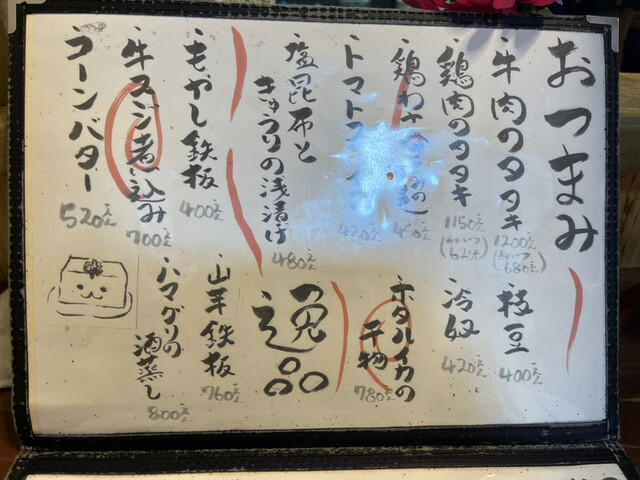 おつまみ
牛肉のタタキ
1200えん
(ハーフ680えん)
鶏肉のタタキ
1150えん
(ハーフ620えん)
鶏わさ
450えん
トマト
420えん
塩昆布と
きゅうりの浅漬け
480えん
もやし鉄板
400えん
牛スジ煮込み
700えん
コーンバター
520えん
枝豆
400えん
冷奴
420えん
ホタルイカの
干物
780えん
逸品
山芋鉄板
760えん
ハマグリの
酒蒸し
800えん